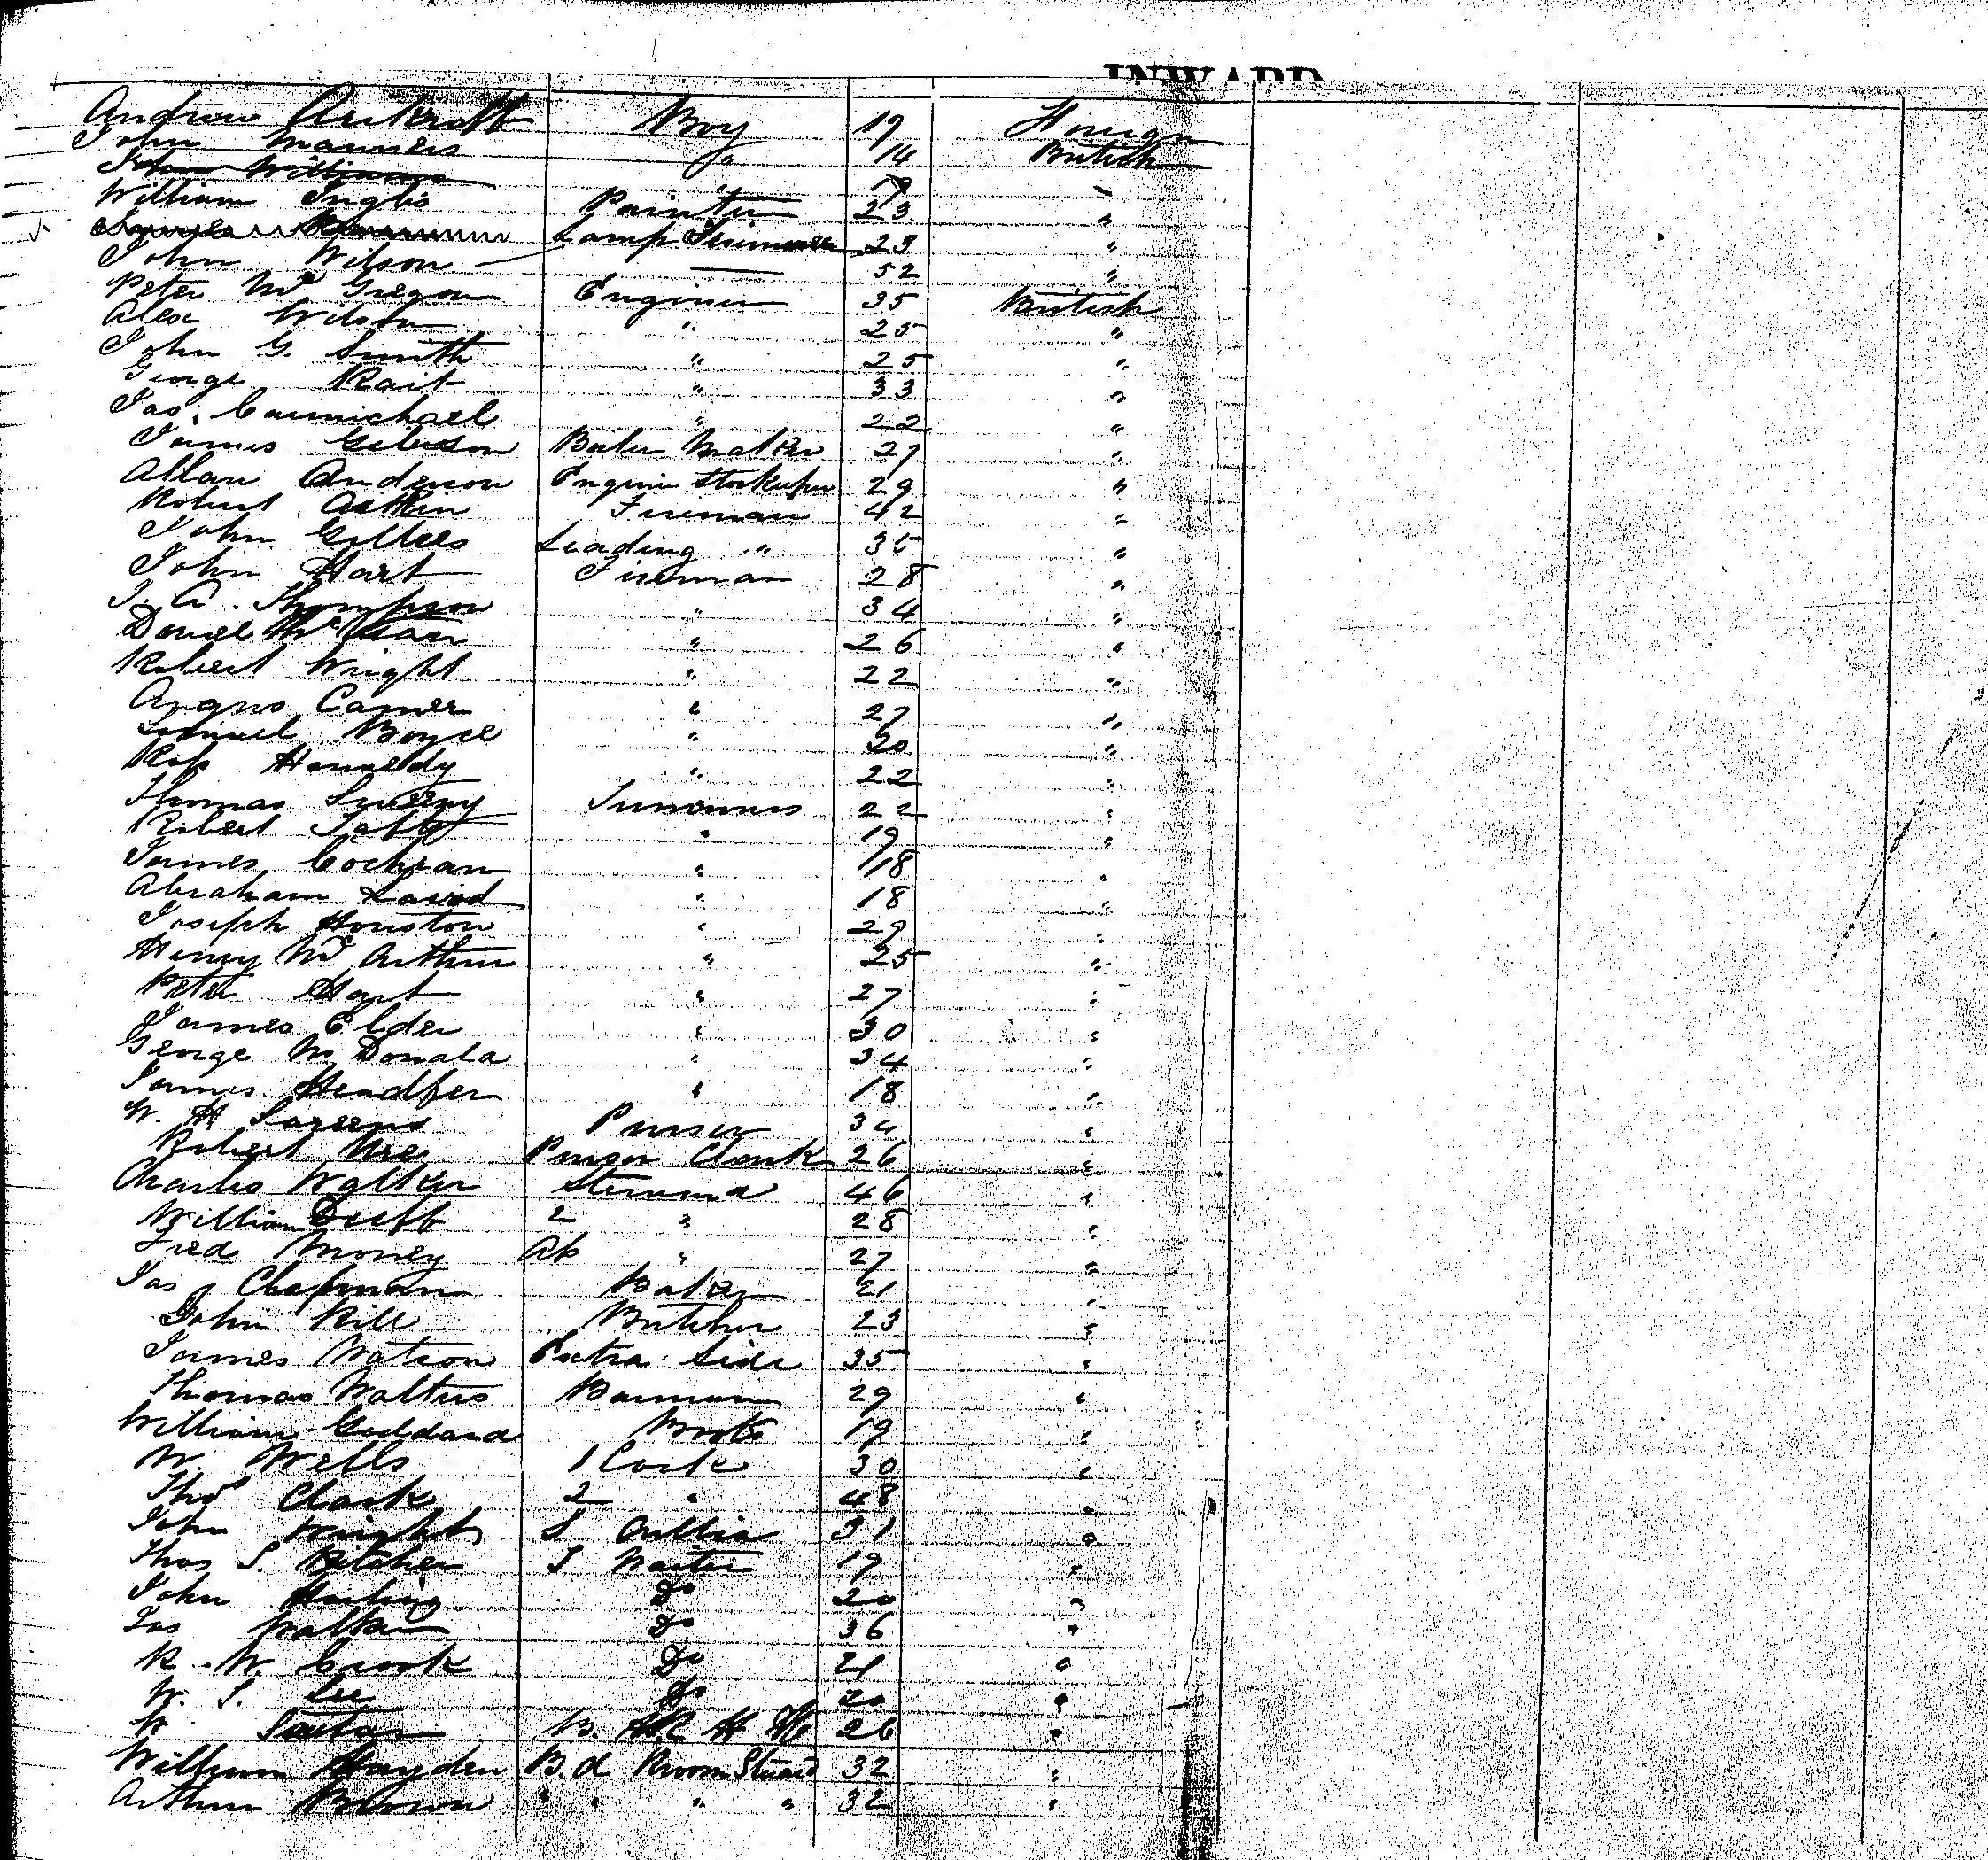 INWARD
Andrew Boy 19
John Manners " 14 British
John Williams 19 "
William Inglis Painter 23 "
Lamp Trimmer 23 "
John Wilson — 52 "
Peter McGregor Engineer 35 British
Alex Wilson " 25 "
John G. Smith " 25 "
George Rait " 33 "
Jas. Carmichael " 22 "
James Gibson Boiler Maker 27 "
Allan Anderson Engine Storekeeper 29 "
Robert Fireman 42 "
John Gillies Leading " 35 "
John Hart Fireman 28 "
J. A. Thompson " 34 "
" 26 "
Robert Wright " 22 "
Angus " 27 "
Samuel Boyce " 20 "
Kennedy " 22 "
Thomas Trimmers 22 "
Robert " 19 "
James Cochran " 18 "
Abraham Laird " 18 "
Joseph Houston " 29 "
Henry McArthur " 25 "
Peter Hart " 27 "
James Elder " 30 "
George McDonald " 34 "
James " 18 "
W. H. Purser 34 "
Robert Purser Clerk 26 "
Charles Walker Steward 46 "
William Duff 2 " 28 "
Fred Money " 27 "
Jas Chapman Baker 21 "
John Butcher 23 "
James Watson Extra 35 "
Thomas Walters Barman 29 "
William Goddard Boots 19 "
W. Wells 1 Cook 30 "
Thos Clark 2 " 48 "
John Wright S 31 "
Thos S. Kitchen S Waiter 19 "
John Do 20 "
Jas Walker Do 36 "
R. W. Crook Do 21 "
W. S. Lee Do 20 "
W B. 26 "
William Hayden B.d Room Steward 32 "
Arthur Brown " " " " 32 "